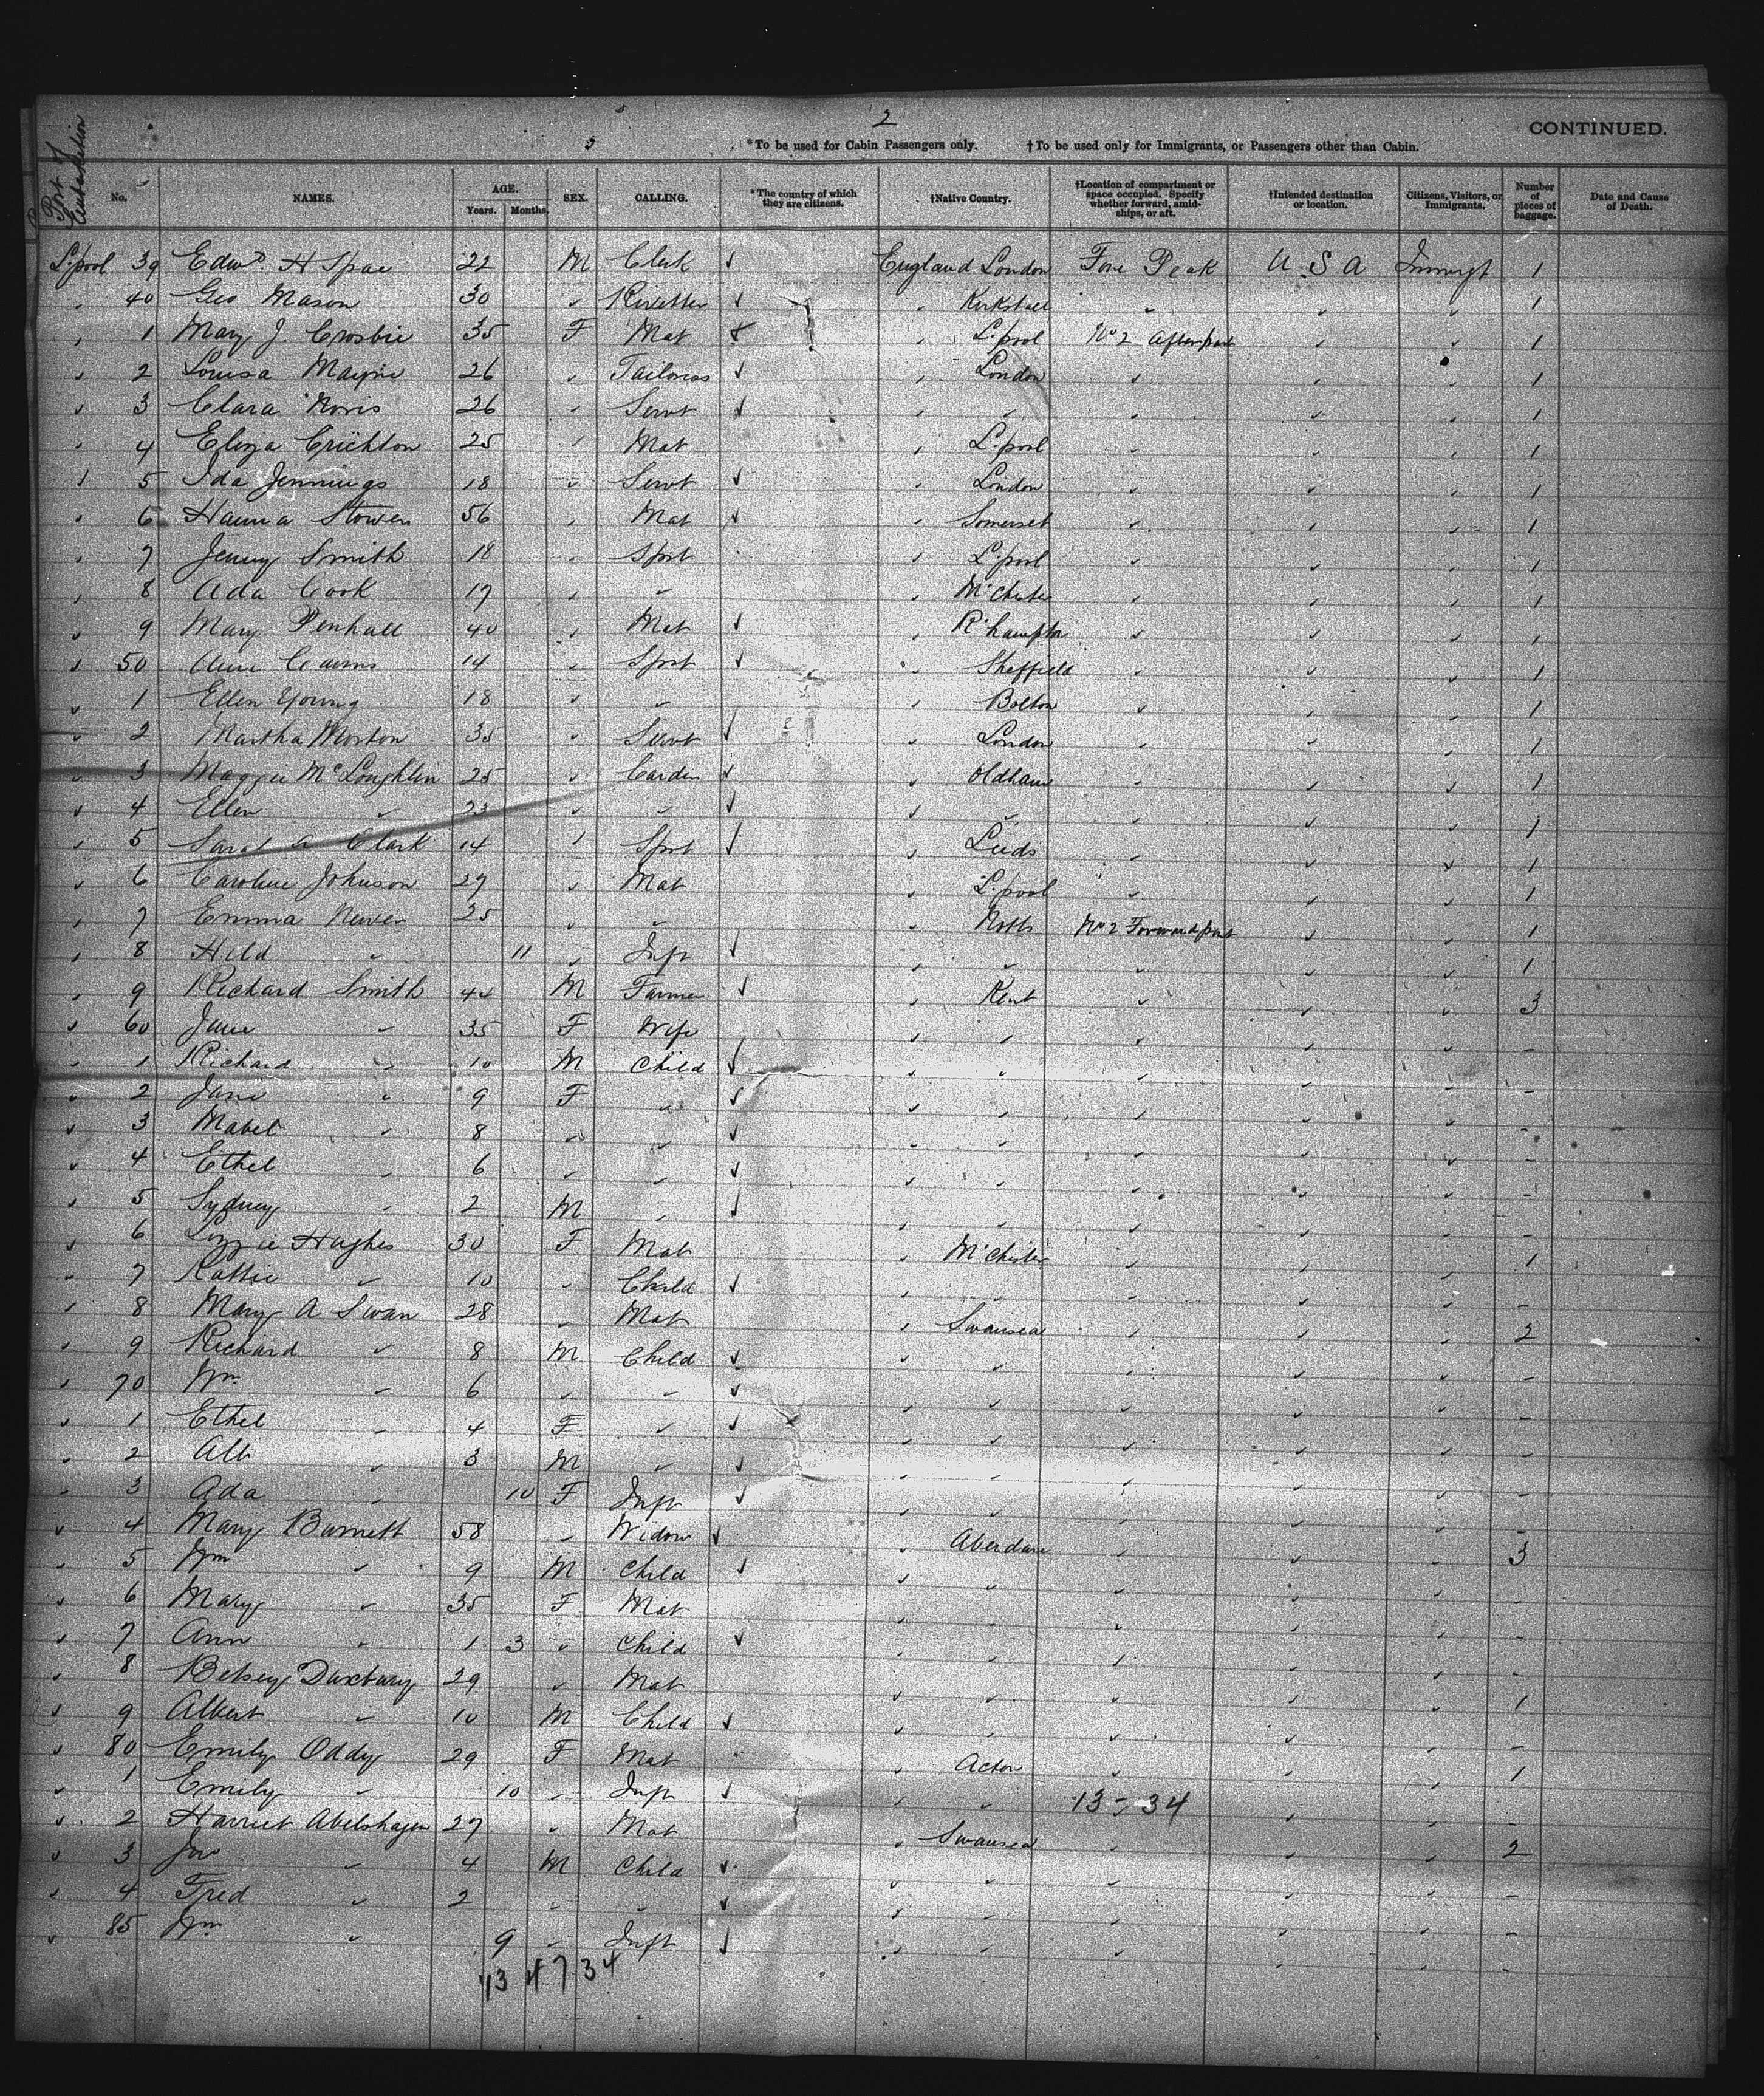 2
CONTINUED.
*To be used for Cabin Passengers only. †To be used only for Immigrants, or Passengers other than Cabin.
Port of Embarkation No. NAMES. AGE. Years. Months. SEX. CALLING. *The country of which they are citizens. †Native Country. †Location of compartment or space occupied. Specify whether forward, amidships, or aft. †Intended destination or location. Citizens, Visitors, or Immigrants. Number of pieces of baggage. Date and Cause of Death.
L'pool 39 Edwd. H 22 M Clerk ✓ England London Fore Peak U.S A Immigt 1
40 Geo Mason 30 " Rivetter ✓ " Kirkstall " " " 1
1 Mary J. Crosbie 35 F Mat " L'pool No 2 After part " " 1
2 Louisa Mayne 26 " Tailoress ✓ " London " " " 1
3 Clara Norris 26 " Servt ✓ " " " " " 1
4 Eliza Crichton 25 " Mat " L'pool " " " 1
5 Ida Jennings 18 " Servt ✓ " London " " " 1
6 Hanna Stowers 56 " Mat ✓ " Somerset " " " 1
7 Jenny Smith 18 " Spst " L'pool " " " 1
8 Ada Cook 17 " " " M'chester " " " 1
9 Mary Penhall 40 " Mat ✓ " R'hampton " " " 1
50 Ann Cairns 14 " Spst ✓ " Sheffield " " " 1
1 Ellen Young 18 " " " Bolton " " " 1
2 Martha Morton 35 " Servt ✓ " London " " " 1
3 Maggie McLoughlin 25 " Carder ✓ " Oldham " " " 1
4 Ellen " 23 " " ✓ " " " " " 1
5 Sarah A Clark 14 " Spst ✓ " Leeds " " " 1
6 Caroline Johnson 29 " Mat " L'pool " " " 1
7 Emma 25 " " " Notts No 2 Forward part " " 1
8 Hild " 11 " Inft ✓ " " " " " 1
9 Richard Smith 44 M Farmer ✓ " Kent " " " 3
60 Jane " 35 F Wife " " " " " -
1 Richard " 10 M Child ✓ " " " " " -
2 Jane " 9 F " ✓ " " " " " -
3 Mabel " 8 " " ✓ " " " " " -
4 Ethel " 6 " " ✓ " " " " " -
5 Sydney " 2 M " ✓ " " " " " -
6 Lizzie Hughes 30 F Mat " M'chester " " " 1
7 Kattie " 10 " Child ✓ " " " " " -
8 Mary A Swan 28 " Mat " Swansea " " " 2
9 Richard " 8 M Child ✓ " " " " " -
70 Wm " 6 " " ✓ " " " " " -
1 Ethel " 4 F " ✓ " " " " " -
2 Alb " 3 M " ✓ " " " " " -
3 Ada " 10 F Inft ✓ " " " " " -
4 Mary Burnett 58 " Widow ✓ " Aberdare " " " 3
5 Wm " 9 M Child ✓ " " " " " -
6 Mary " 35 F Mat " " " " " -
7 Ann " 1 3 " Child ✓ " " " " " -
8 Betsey Duxbury 29 " Mat " " " " " 1
9 Albert " 10 M Child ✓ " " " " " -
80 Emily Oddy 29 F Mat " Acton " " " 1
1 Emily " 10 " Inft ✓ " " 13-34 " " -
2 Harriet Abelshagen 27 " Mat " Swansea " " " 2
3 " 4 M Child ✓ " " " " " -
4 Fred " 2 " " ✓ " " " " " -
85 Wm " 9 " Inft ✓ " " " "
13 4 7 34